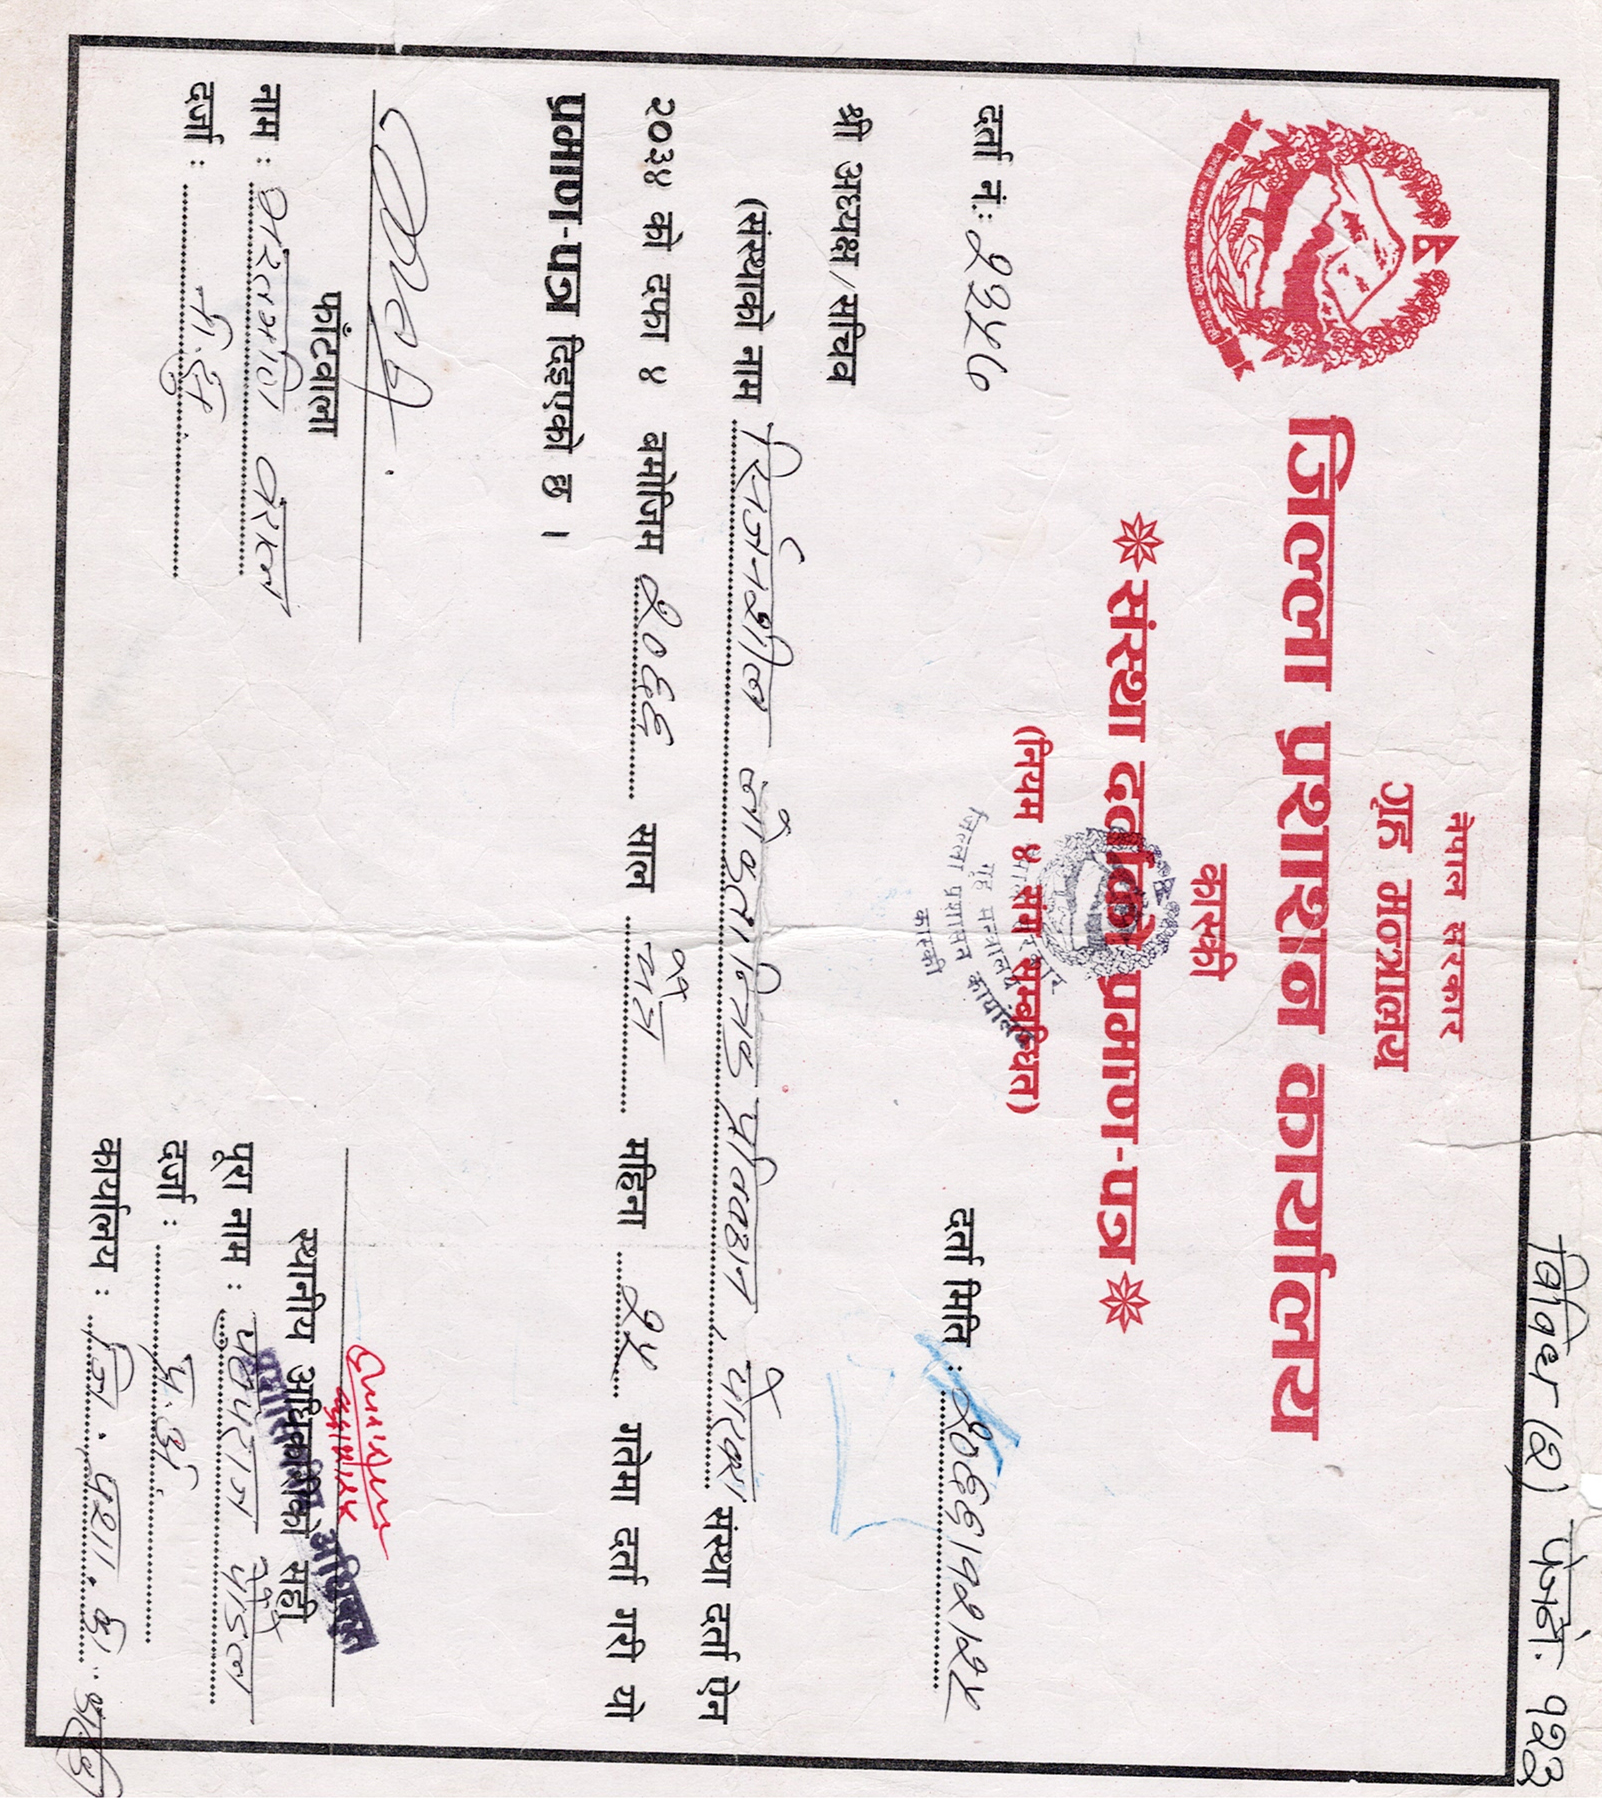 किताब (२) पे.नं. १२३
नेपाल सरकार
गृह मन्त्रालय
जिल्ला प्रशासन कार्यालय
कास्की
संस्था दर्ताको प्रमाण-पत्र
(नियम ४ संग सम्बन्धित)
गृह मन्त्रालय
जिल्ला प्रशासन कार्यालय
कास्की
दर्ता नं.: २३५७ दर्ता मिति : २०६६।१२।२५
श्री अध्यक्ष/सचिव
(संस्थाको नाम सिर्जनशील लोकतान्त्रिक प्रतिष्ठान, पोखरा संस्था दर्ता ऐन
२०३४ को दफा ४ बमोजिम २०६६ साल चैत्र महिना २५ गतेमा दर्ता गरी यो
प्रमाण-पत्र दिइएको छ ।
फांटवाला
नाम : भरतमणि
दर्जा :
स्थानीय अधिकारीको सही
पूरा नाम : पौडेल
दर्जा : प्र.जि.अ.
कार्यालय : जि. प्रशा. का. कास्की